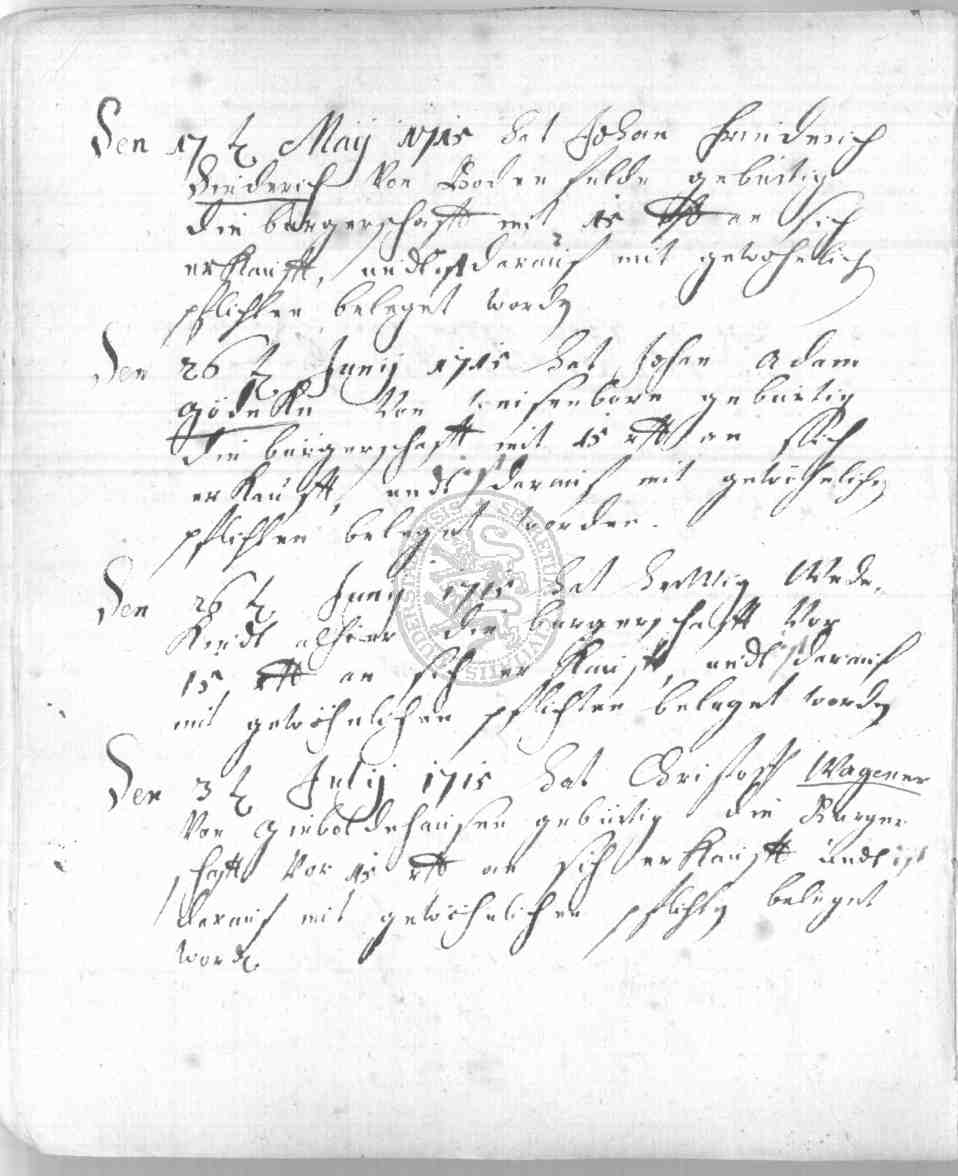 Den 17 t. Maij 1715 hat Johan Friederich
Diederich Von Bodenfelde gebürtig
die bürgerschafft mit 15 rthl an sich
erkaufft, undt ist darauf mit gewöhnlich
pflichten beleget word
Den 26 t. Junij 1715 hat Johan Adam
Gödeke Von Weisenborn gebürtig
die bürgerschafft mit 15 rthl an sich
erkaufft, undt ist darauf mit gewöhnlichen
pflichten beleget worden.
Den 26 t. Junij 1715 hat Wede-
Kindt alhier die bürgerschafft Vor
15 rthl an sich erkaufft, undt ist darauf
mit gewöhnlichen pflichten beleget word
Den 3 t. Julij 1715 hat Christoff Wagener
Von Gieboldehausen gebürtig die Bürger
schafft Vor 15 rthl an sich erkaufft undt ist
darauf mit gewöhnlichen pflicht beleget
word